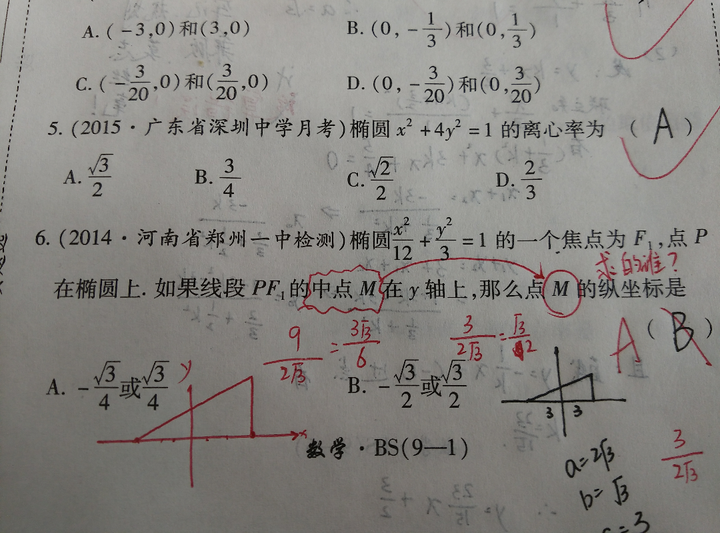 A. (-3,0)和(3,0) B. (0, -1/3)和(0, 1/3)
C. (-3/20, 0)和(3/20, 0) D. (0, -3/20)和(0, 3/20)
5. (2015·广东省深圳中学月考)椭圆 x²+4y²=1 的离心率为 ( A )
A. √3/2 B. 3/4 C. √2/2 D. 2/3
6. (2014·河南省郑州一中检测)椭圆 x²/12 + y²/3 = 1 的一个焦点为 F₁,点 P
求的谁?
在椭圆上. 如果线段 PF₁ 的中点 M 在 y 轴上,那么点 M 的纵坐标是
A ( B )
9/2√3 = 3√3/6 3/2√3 = √3/2
A. -√3/4 或 √3/4 B. -√3/2 或 √3/2
y
x
3 3
数学·BS(9—1)
a=2√3
b=√3
c=3
3/2√3